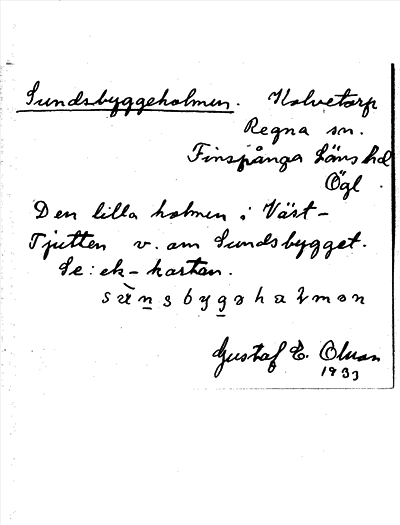 Sundsbyggeholmen. Kolvetorp
Regna sn.
Finspånga Läns hd
Ögl.
Den lilla holmen i Väst-
Tjutten v. om Sundsbygget.
Se: ek-kartan.
Gustaf E. Olson
1933